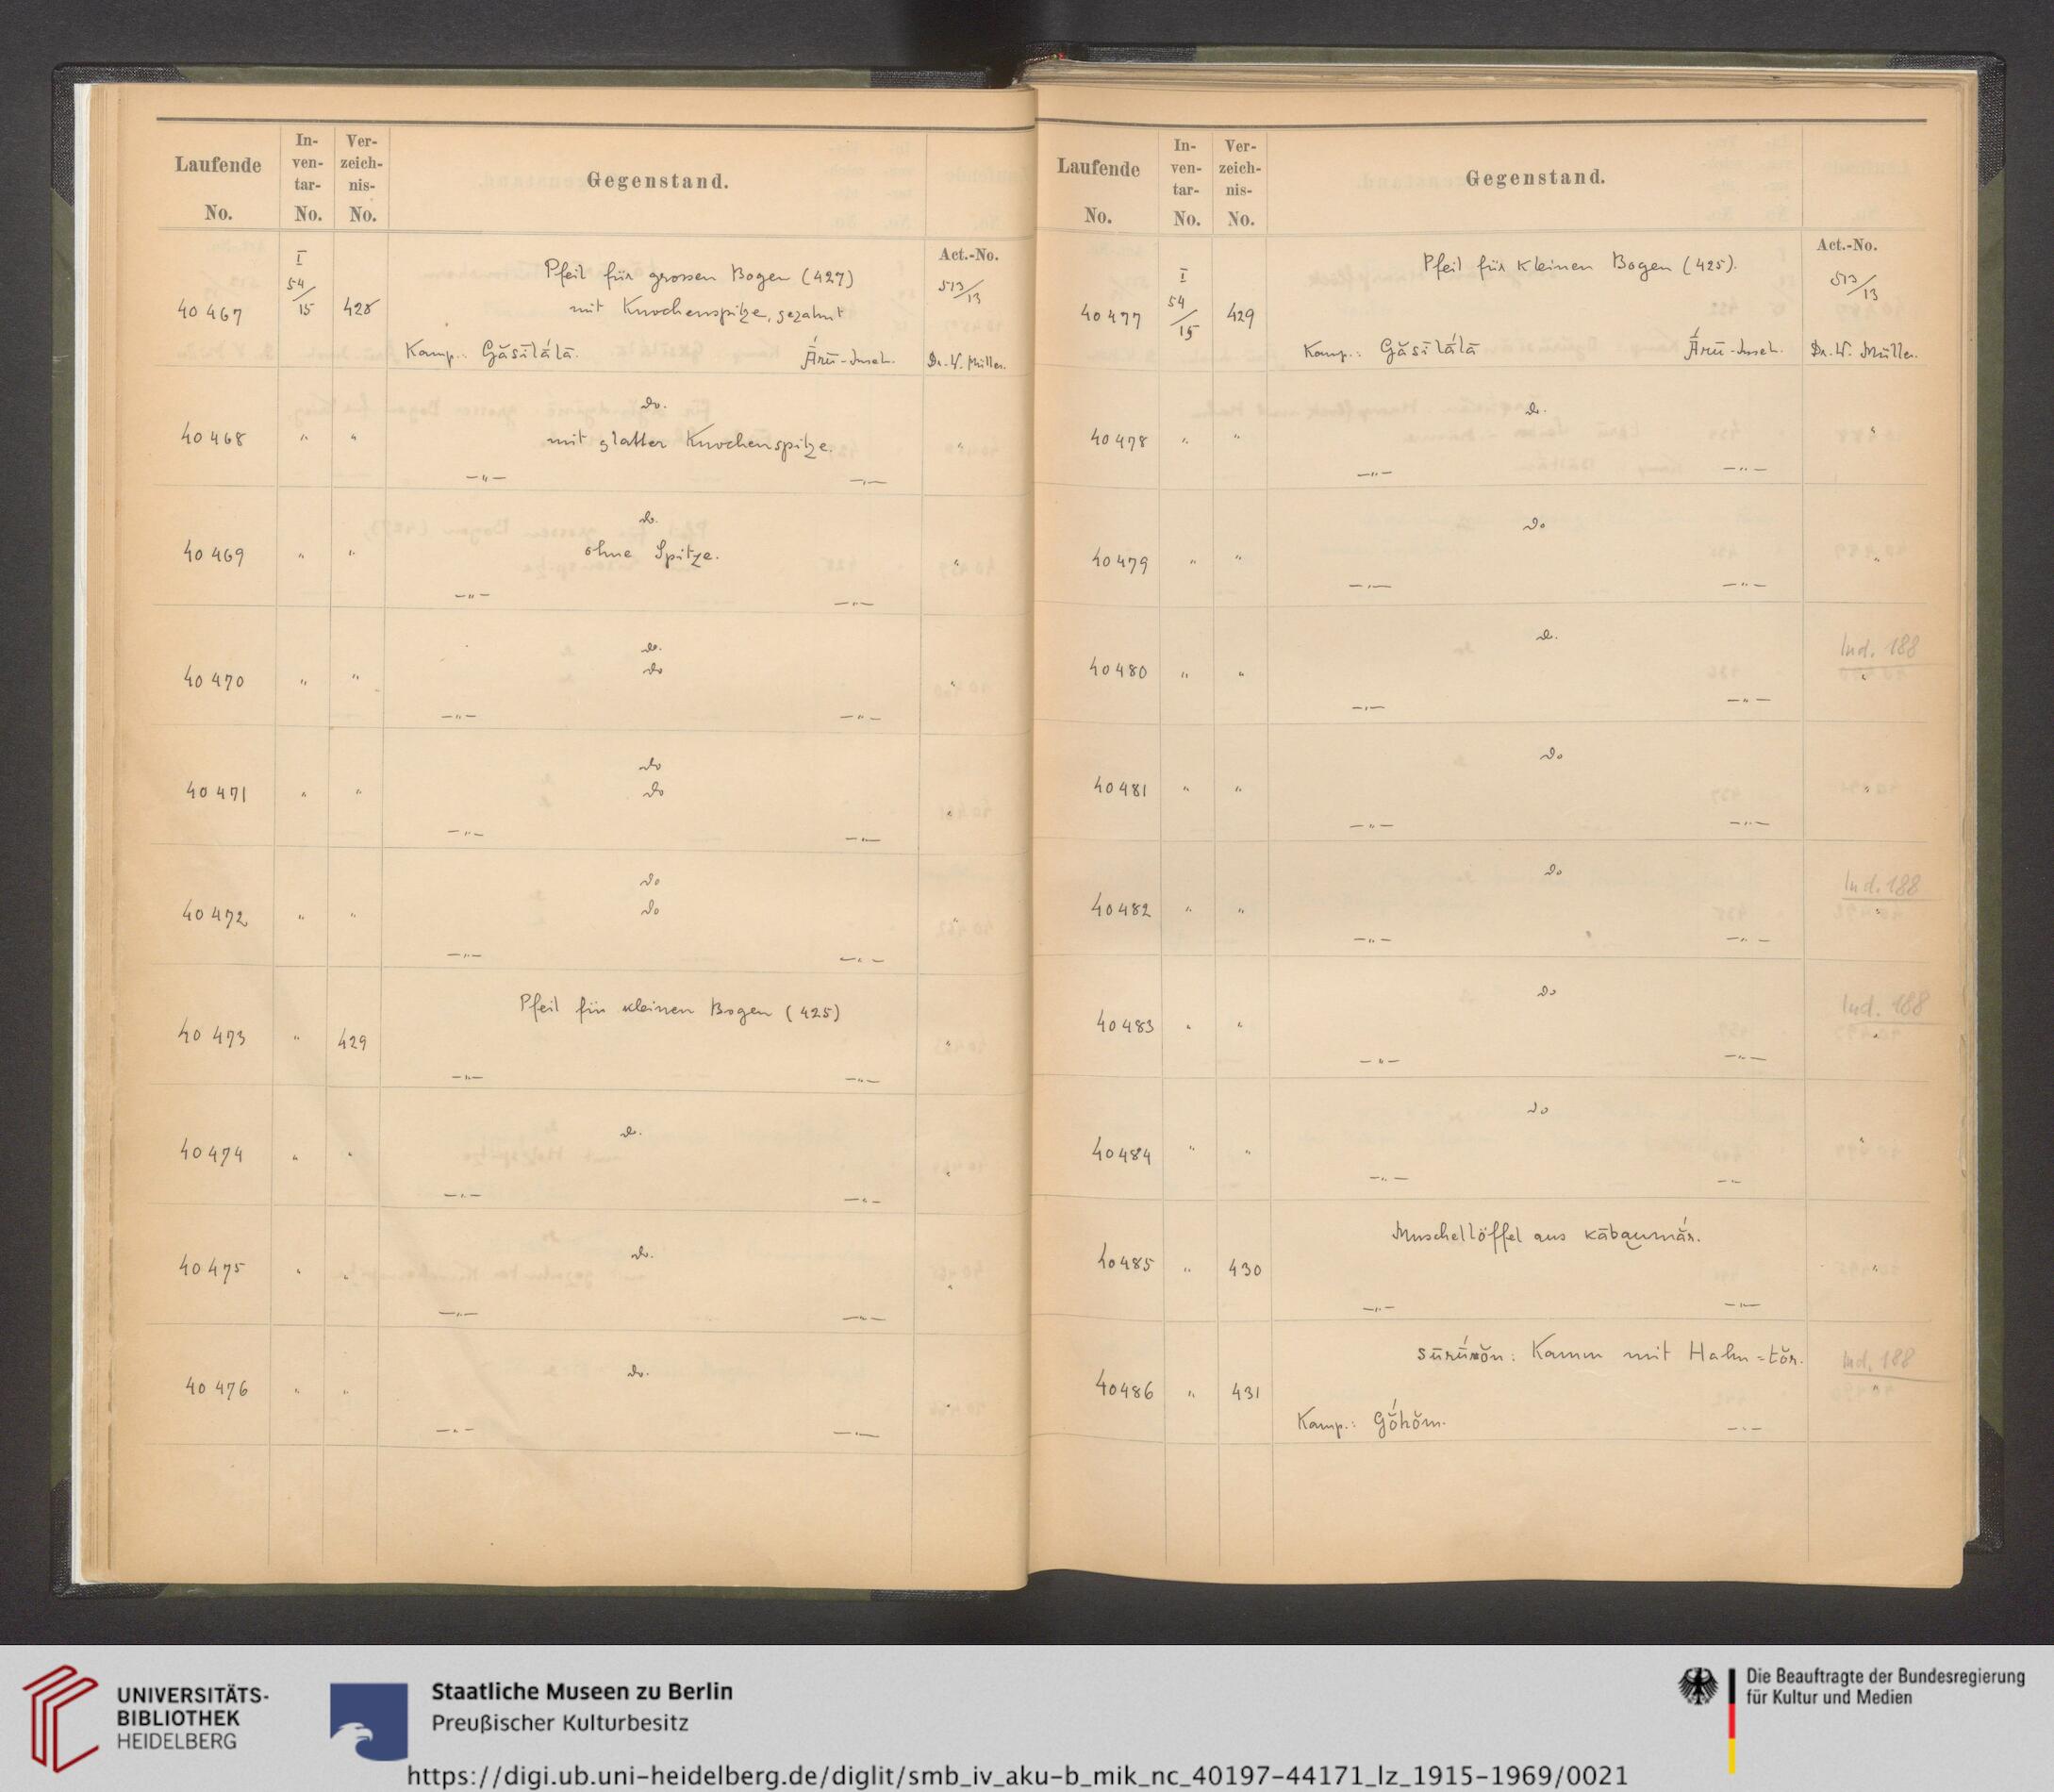 Laufende No.
In-ven-tar-No.
Ver-zeich-nis-No.
Gegenstand.
Act.-No.
40 467 I 54/15 428 Pfeil für grossen Bogen (427) 513/13
mit Knochenspitze, gezahnt
Kamp.: Găsīlắlā. Ā́rū-Inseln. Dr. W. Müller.
40 468 " " do. "
mit glatter Knochenspitze.
—"— —"—
40 469 " " do. "
ohne Spitze.
—"— —"—
40 470 " " do. "
do
—"— —"—
40 471 " " do "
do
—"— —"—
40 472 " " do "
do
—"— —"—
40 473 " 429 Pfeil für kleinen Bogen (425) "
—"— —"—
40 474 " " do. "
—"— —"—
40 475 " " do. "
—"— —"—
40 476 " " do. "
—"— —"—
Laufende No.
In-ven-tar-No.
Ver-zeich-nis-No.
Gegenstand.
Act.-No.
40 477 I 54/15 429 Pfeil für kleinen Bogen (425). 513/13
Kamp.: Găsīlắlā Ā́rū-Inseln. Dr. W. Müller.
40 478 " " do. "
—"— —"—
40 479 " " do "
—"— —"—
40 480 " " do. Ind. 188 "
—"— —"—
40 481 " " do "
—"— —"—
40 482 " " do Ind. 188 "
—"— —"—
40 483 " " do Ind. 188 "
—"— —"—
40 484 " " do "
—"— —"—
40 485 " 430 Muschellöffel aus kābaumắr. "
—"— —"—
40 486 " 431 sūrū́nŏn: Kamm mit Hahn=tŏr. Ind. 188 "
Kamp.: Gŏ́hŏm. —"—
UNIVERSITÄTS-
BIBLIOTHEK
HEIDELBERG
Staatliche Museen zu Berlin
Preußischer Kulturbesitz
Die Beauftragte der Bundesregierung
für Kultur und Medien
https://digi.ub.uni-heidelberg.de/diglit/smb_iv_aku-b_mik_nc_40197-44171_lz_1915-1969/0021